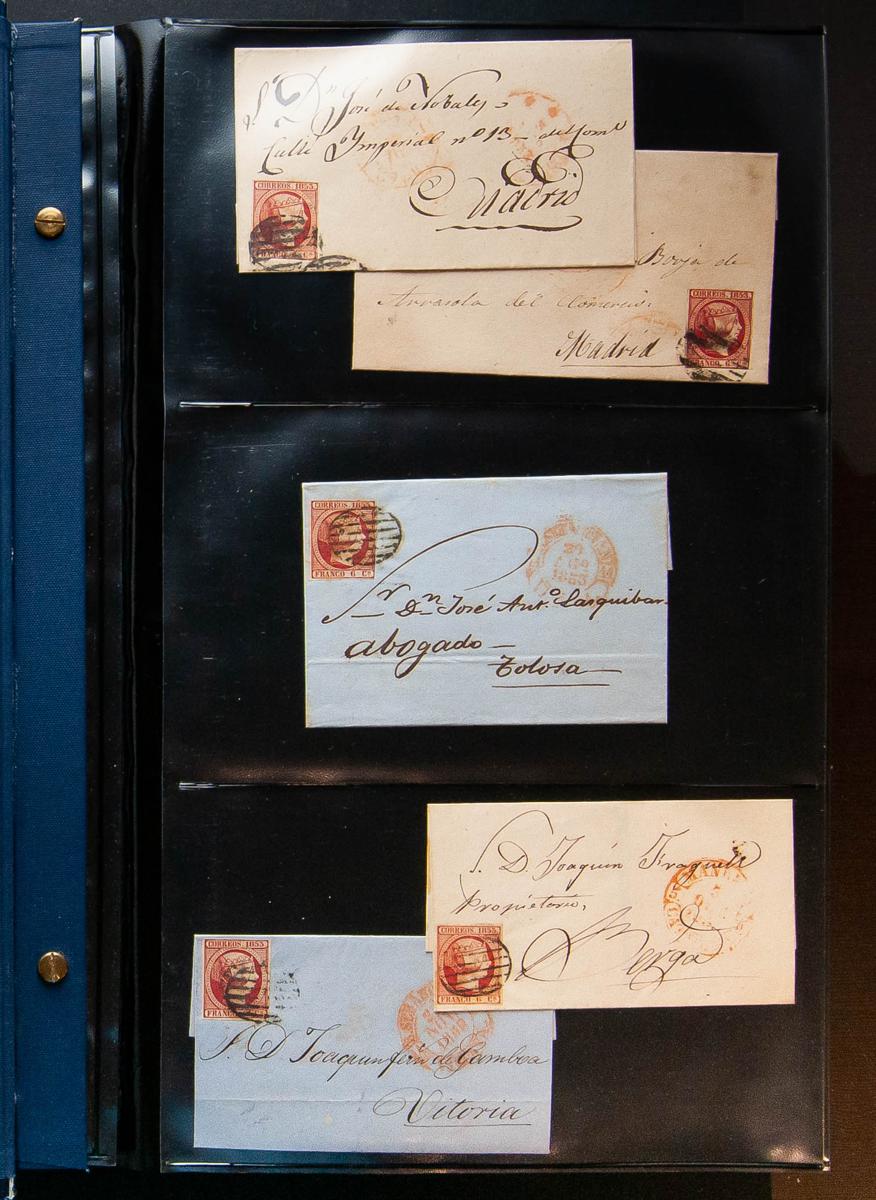 Sr Dn José de Nobales
Calle Ymperial nº 13 - del Comº
Madrid
CORREOS 1853
FRANCO 6 Cs
Borja de
Arrasola del Comercio.
Madrid
CORREOS 1853
FRANCO 6 Cs
CORREOS 1853
FRANCO 6 Cs
1853
Sr Dn José Antº Lasquibar
abogado
Tolosa
S. D. Joaquin
Propietario,
Berga
CORREOS 1853
FRANCO 6 Cs
CORREOS 1853
FRANCO
S. D. Joaquin de Gamboa
Vitoria